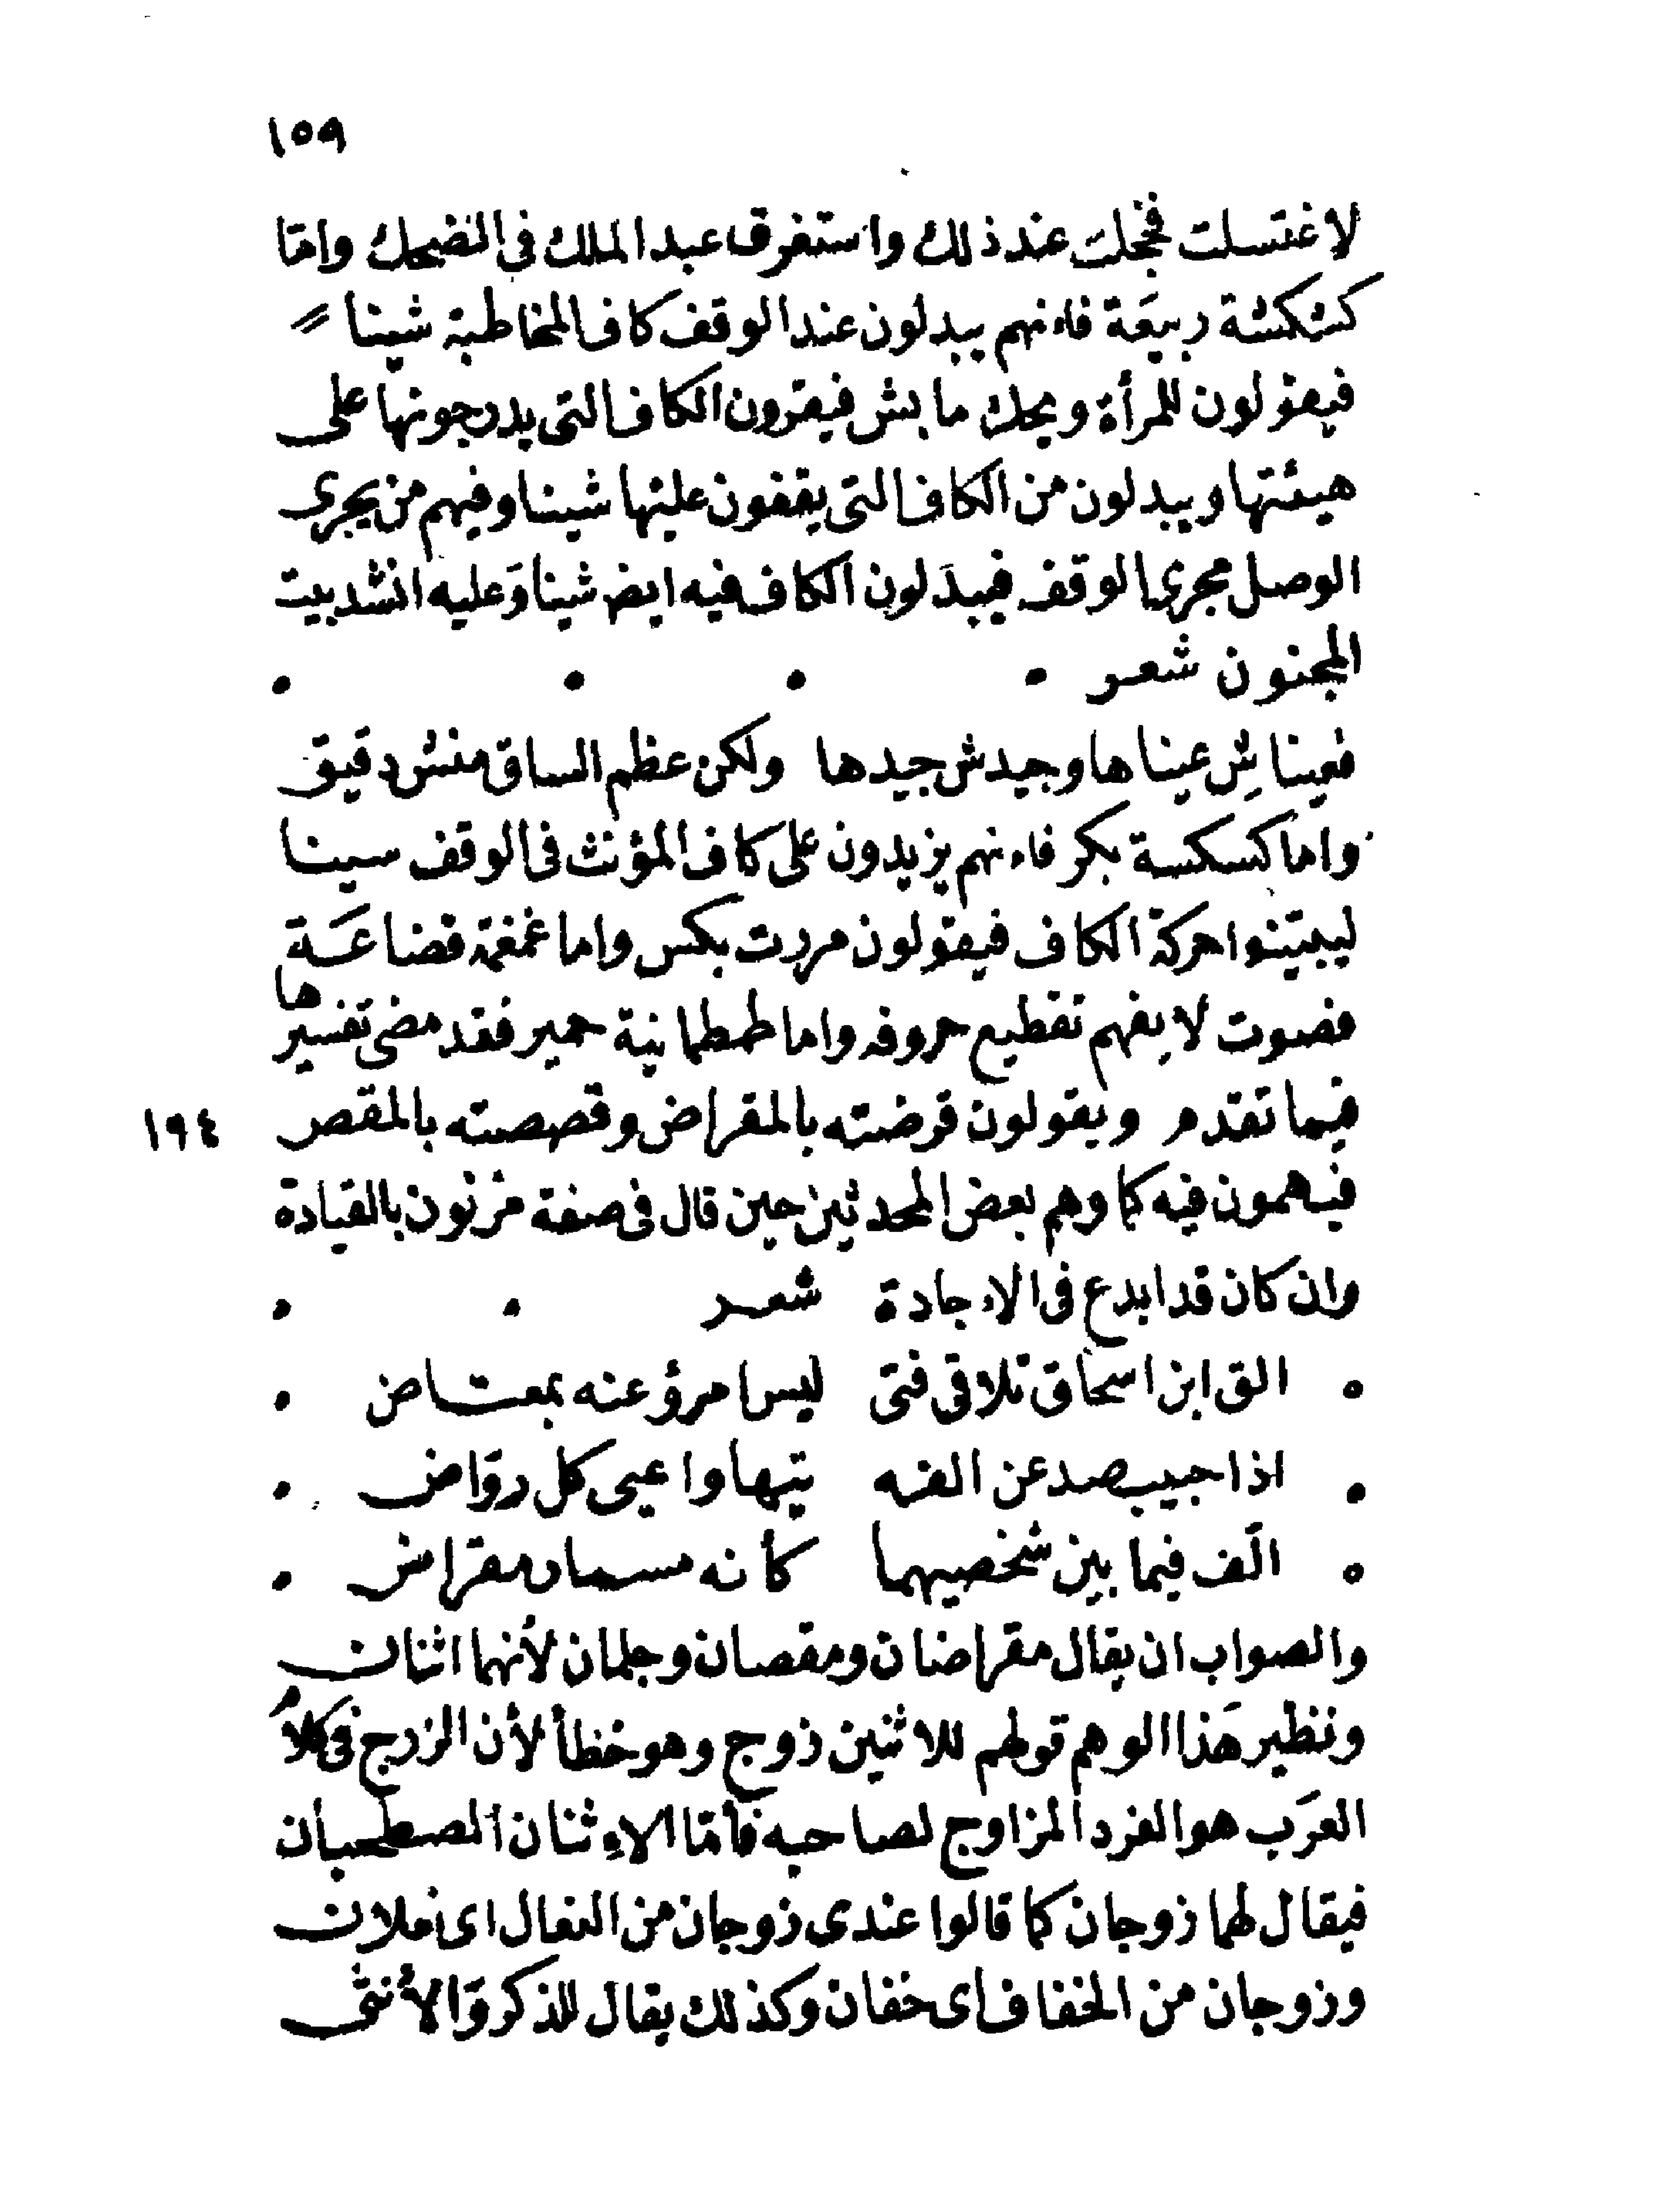 ١٥٩
لاغتسلت فخجلت عند ذلك واستغرق عبد الملك فى الضحك وامّا
كشكشة ربيعَة فاءنهم يبدلون عند الوقف كاف المخاطبة شينا
فيقولون للمرأة ويحك مابش فيقرون الكاف التى يدرجونها على
هيئتها ويبدلون من الكاف التى يقفون عليها شينا وفيهم من يجرى
الوصل مجرى الوقف فيبدَلون الكاف فيه ايض شينا وَعليه انشد بيت
المجنون شعر
فعيناشِ عيناها وجيدش جيدها ولكن عظم الساق منش دقيق
واما كسكسة بكر فاءنهم يزيدون على كاف المؤنث فى الوقف سينا
ليبيّنوا حركة الكاف فيقولون مررت بكس واما غمغمة قضاعَة
فصوت لا يفهم تقطيع حروفه واما طمطمانية حمير فقد مضى تفسيرها
فيما تقدم ويقولون قرضته بالمقراض وقصصته بالمقص
١٩٤
فيهمون فيه كما وهم بعض المحدثين حين قال فى صفة مزنون بالقيادة
وان كان قد ابدع فى الاءجادة شعر
الق ابن اسحاق تلاقى فتى ليس امرؤ عنه بمعتاض
اذا حبيب صد عن الفه تيها واعيى كل روّاض
الّف فيما بين شخصيهما كأنه مسمار مقراض
والصواب ان يقال مقراضان ومقصان وجلمان لأنهما اثنان
ونظير هَذا الوهم قولهم للاثنين زوج وهو خطأ لأن الزوج فى كلام
العرَب هو الفرد المزاوج لصاحبه فأمّا الاءِثنان المصطحبان
فيقال لهما زوجان كما قالوا عندى زوجان من النعال اى نعلان
وزوجان من الخفاف اى خفان وكذلك يقال للذكر وَالأنثى